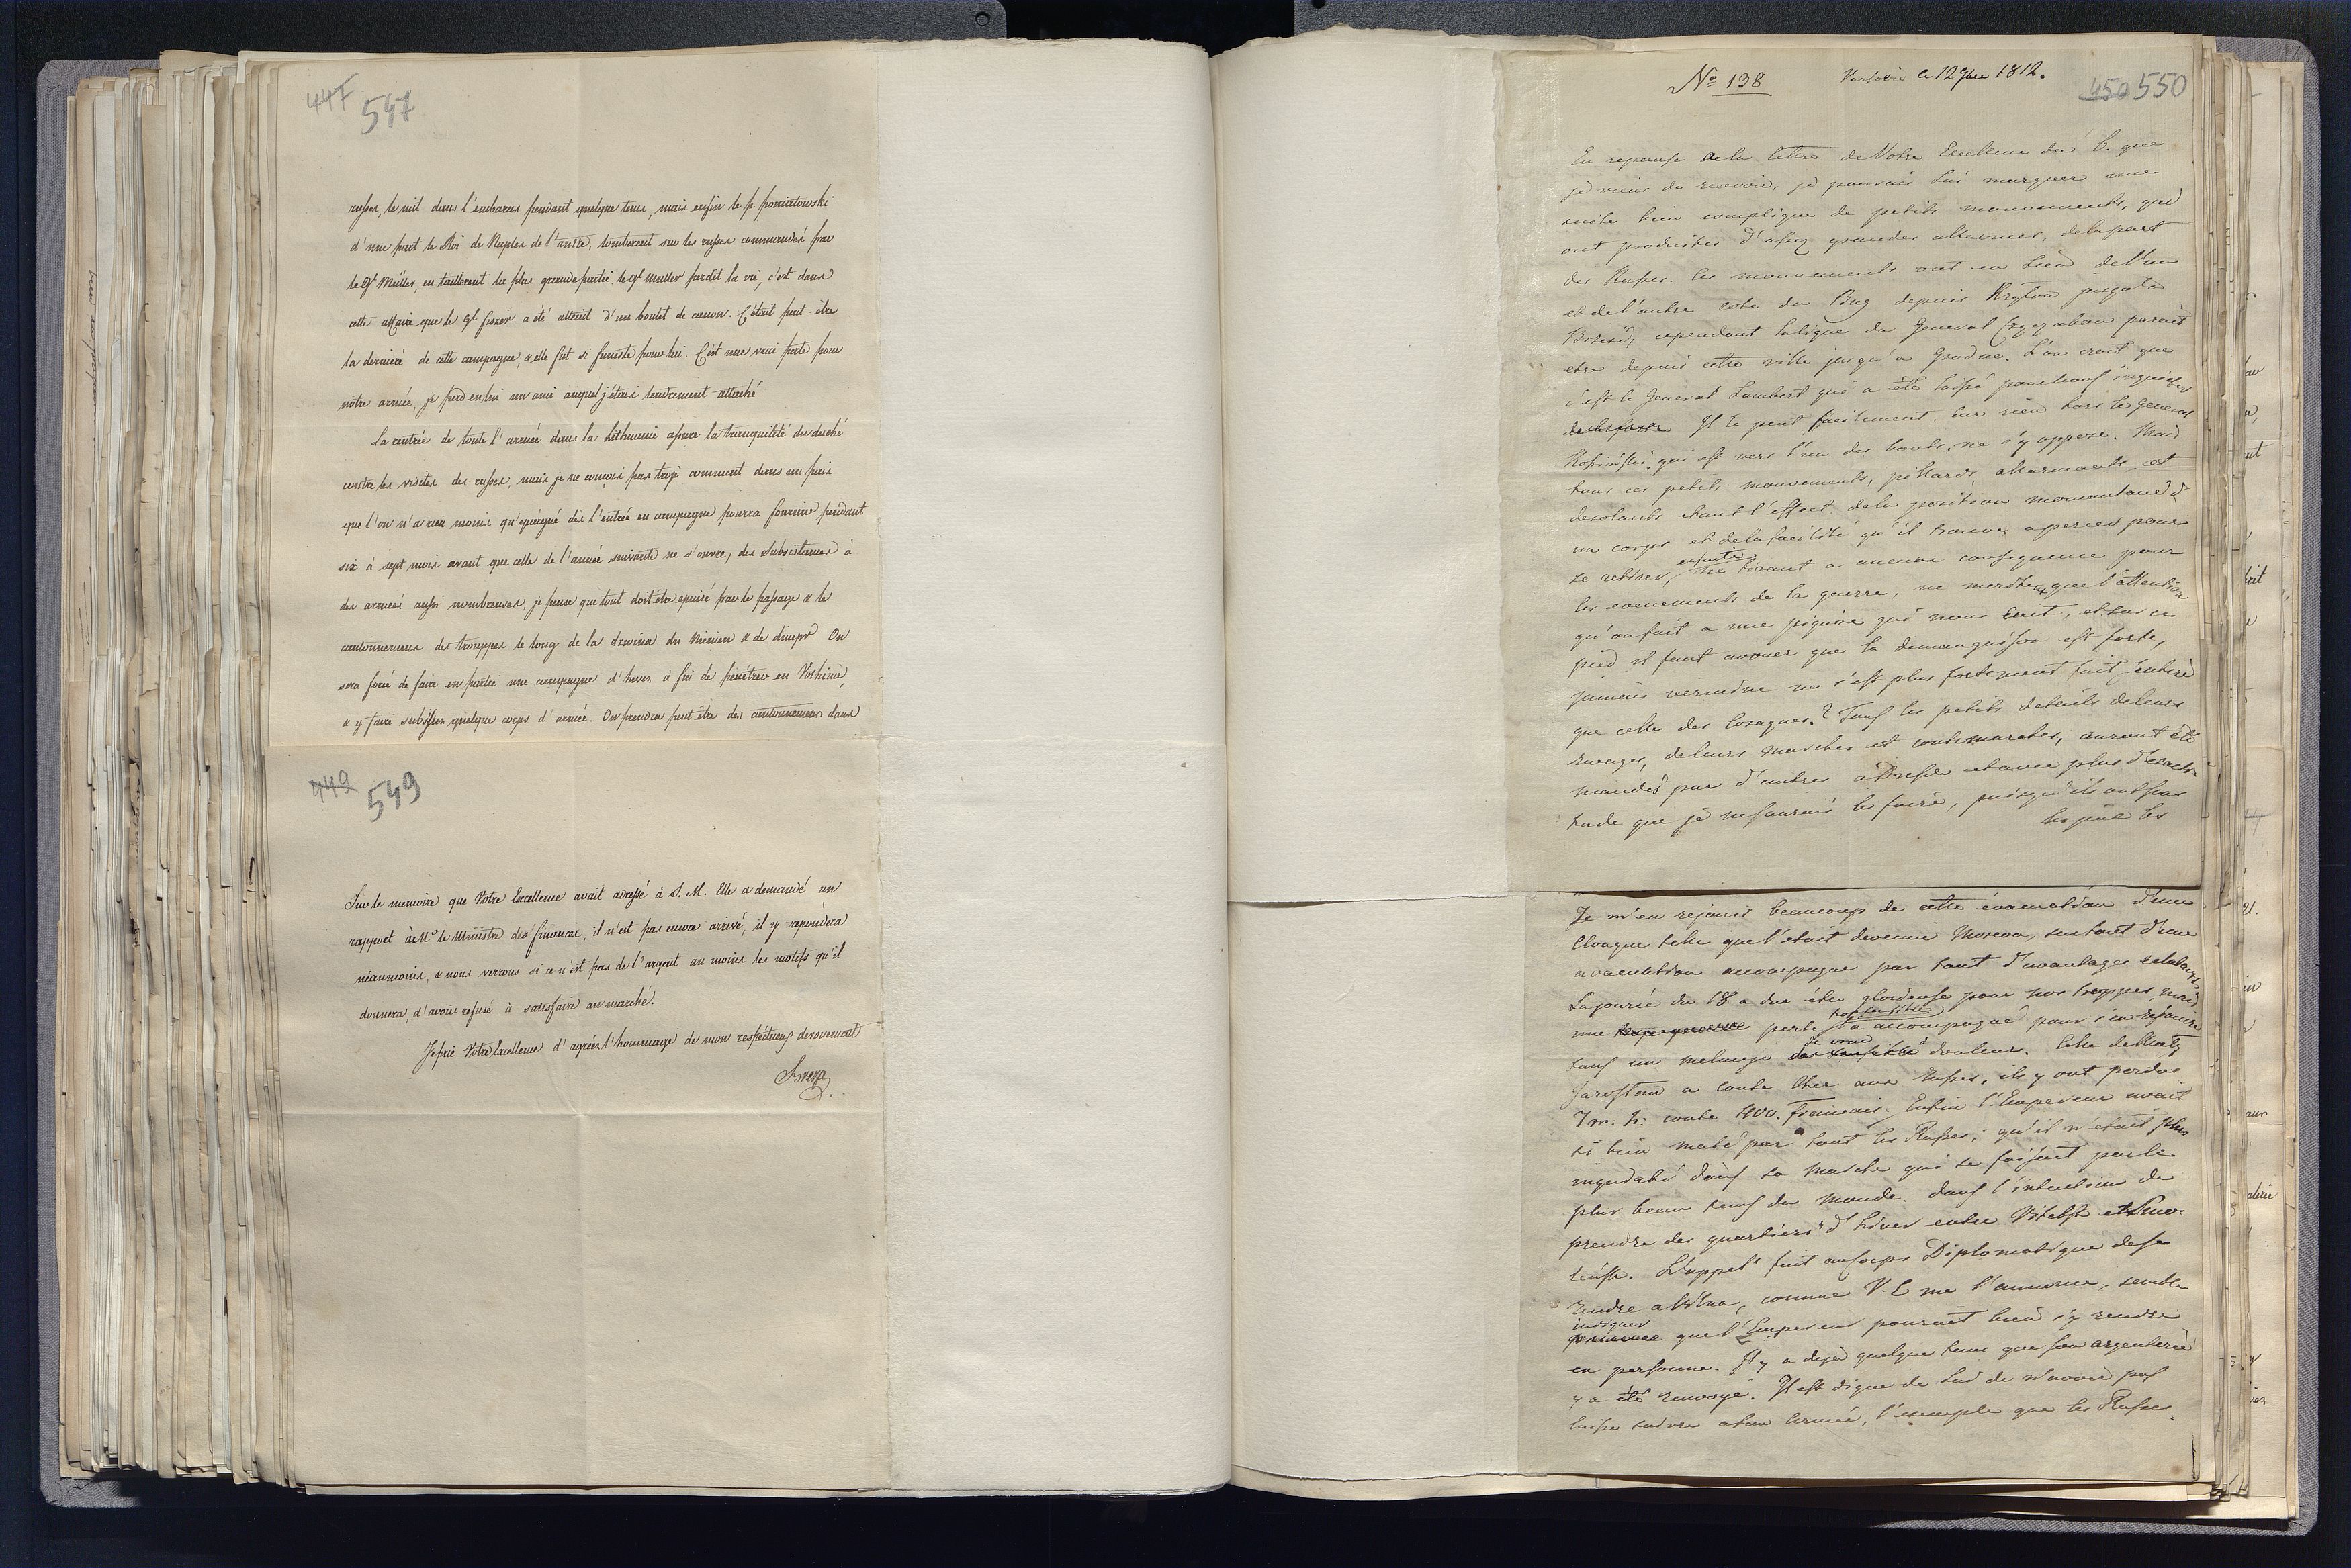 447 547
russes, le mit dans l'embaras pendant quelque tems, mais enfin le p. poniatowski
d'une part le Roi de Naples de l'autre, tomberent sur les russes commandés par
le Gl Müller, en taillerent la plus grande partie, le gl Müller perdit la vie, c'est dans
cette affaire que le Gl fiszer a été atteint d'un boulet de canon. C'étoit peut-être
la derniere de cette campagne, & elle fut si funeste pour lui. C'est une vraie perte pour
nôtre armée, je perd en lui un ami auquel j'étois tendrement attaché
La rentrée de toute l'armée dans la Lithuanie assure la tranquilité du duché
contre les visites des russes, mais je ne conçois pas trop comment dans un païs
que l'on n'a rien moins qu'épargné dès l'entrée en campagne pourra fournir pendant
six à sept mois avant que celle de l'année suivante ne s'ouvre, des Subsistances à
des armées aussi nombreuses, je pense que tout doit être epuisé par le passage & le
cantonnemens des trouppes le long de la dzwina du Niemen & de dniepr. On
sera forcé de faire en partie une campagne d'hiver à fin de penétrer en Volhinie,
& y faire subsister quelque corps d'armée. On prendra peut être des cantonnemens dans
449 549
Sur le memoire que Votre Excellence avait adressé à S. M. Elle a demandé un
rapport à Mr le Ministre des finances, il n'est pas encore arrivé, il y repondera
néanmoins, & nous verrons si ce n'est pas de l'argent au moins les motifs qu'il
donnera, d'avoir refusé à satisfaire au marché.
Je prie Votre Excellence d'agréer l'hommage de mon respectueux devouement
Breza
No 138 Varsovie le 12 9bre 1812. 450 550
En reponse de la lettre de Votre Excellence du 6. que
je viens de recevoir, je pourrais lui marquer une
suite bien complique de petits mouvements, qui
ont produites d'assez grandes allarmes, de la part
des Russes. Ces mouvements ont eu lieu de l'un
et de l'autre coté du Bug depuis Krylow jusqu'a
Brzesc, cependant la ligne du General parait
etre depuis cette ville jusqu'a Grodno. L'on croit que
c'est le General Lambert qui a été laissé pour nous inquieter
Il le peut facilement. Car rien hors le General
Kosinski, qui est vers l'un des bouts, ne s'y oppose. Mais
tous ces petits mouvements, pillards, allarmants, et
desolants etant l'effect de la position momentané d'
un corps et de la facilité qu'il trouve a percer pour
se retirer, ensuite ne tirant a aucune consequence pour
les evenements de la guerre, ne meritent que l'attention
qu'on fait a une piqure qui nous cuit, et sur ce
pied il faut avouer que la demangeaison est forte,
jamais vermine ne s'est plus fortement fait sentir
que celle des Cosaques. Tous les petits details de leurs
ravages, de leurs marches et contremarches, auront été
mandés par d'autres a Dresde et avec plus d'exacti-
tude que je ne saurais le faire, puisqu'ils ont
les
Je m'en rejouis beaucoup de cette évacuation d'une
Cloaque telle que l'etait devenue Moscou, surtout d'une
evacuation accompagne par tant d'avantages
La journée du 18 a due être glorieuse pour nos troppes, mais
une perte sensible l'a accompagné pour s'en rejouir
sans un melange de vraie douleur. Celle de Maly
Jaroslaw a couté cher aux Russes, ils y ont perdus
7 m: h: contre 400. Francais. Enfin l'Empereur avait
si bien maté par tout les Russes, qu'il n'était plus
inquieté dans sa marche qui se faisait par le
plus beau tems du monde. dans l'intention de
prendre des quartiers d'hiver entre Vitebsk et Smo-
lensk. L'appel fait au Corps Diplomatique de se
rendre a Wilna, comme V. E. me l'annonce, semble
indiquer que l'Empereur pourrait bien s'y rendre
en personne. Il y a deja quelque tems que son argenterie
y a été renvoyé. Il est digne de lui de n'avoir pas
laisse suivre a son Armée, l'exemple que les Russes